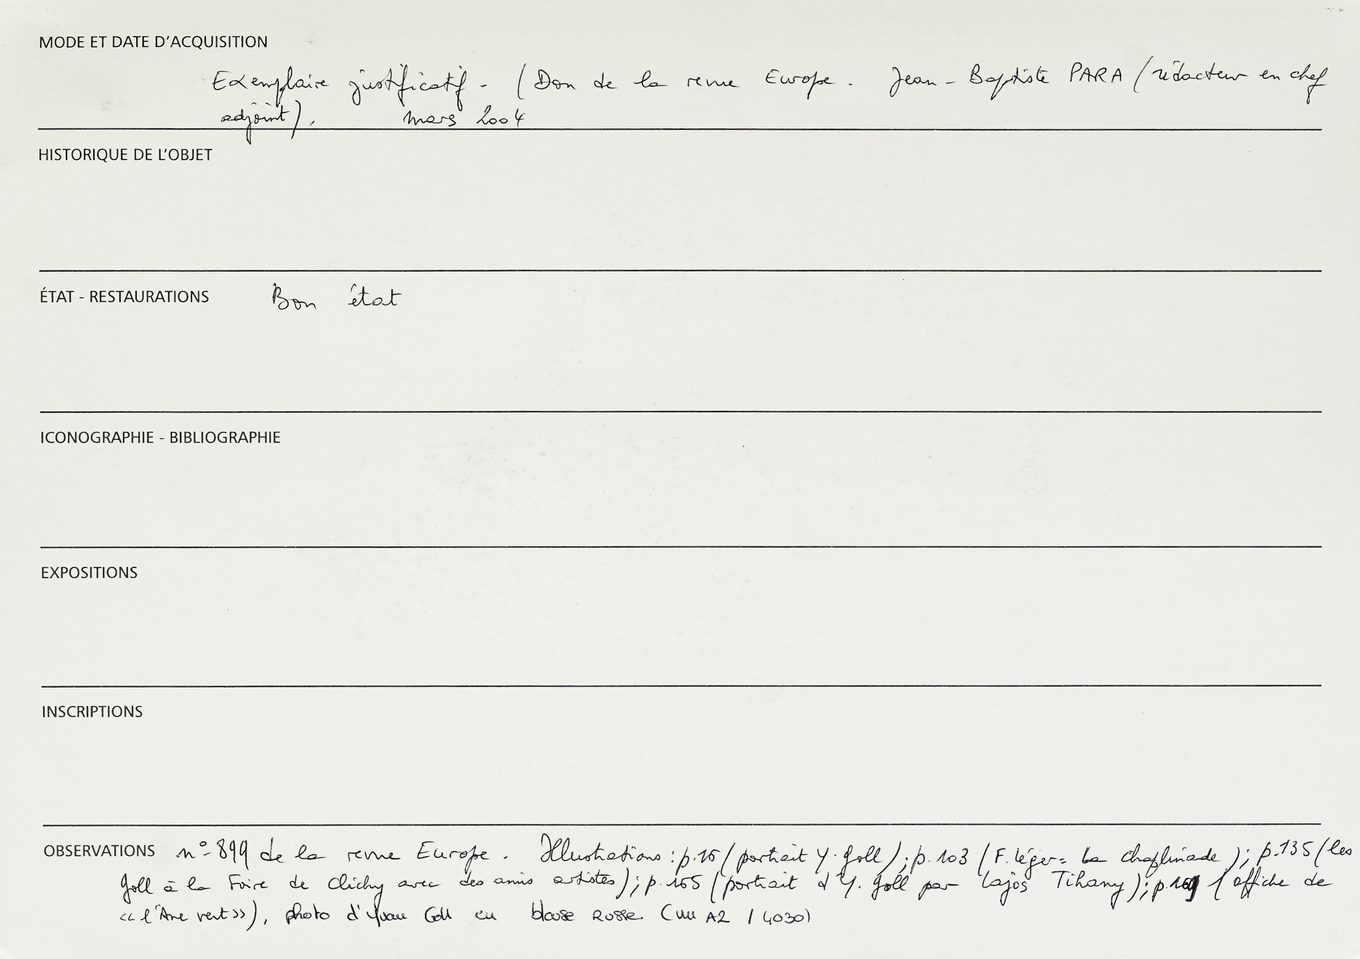 MODE ET DATE D'ACQUISITION
Exemplaire justificatif - (Don de la revue Europe. Jean-Baptiste PARA (rédacteur en chef
adjoint), mars 2004
HISTORIQUE DE L'OBJET
ÉTAT - RESTAURATIONS Bon état
ICONOGRAPHIE - BIBLIOGRAPHIE
EXPOSITIONS
INSCRIPTIONS
OBSERVATIONS n°-899 de la revue Europe. Illustrations : p. (portrait Y. Goll); p. 103 (F. Léger = La chaplinade); p. 135 (les
Goll à la Foire de Clichy avec des amis artistes); p. 165 (portrait d'Y. Goll par Lajos Tihany); p. (affiche de
<< l'Ane vert >>), photo d'Yvan Goll en blouse Russe ( A2 / 4030)